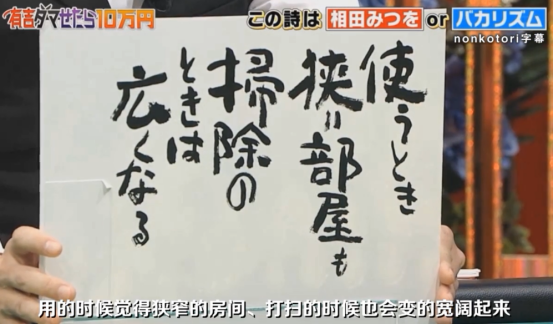 有吉ダマせたら10万円
この詩は 相田みつを or バカリズム
nonkotori字幕
使うとき
狭い部屋も
掃除の
ときは
広くなる
用的时候觉得狭窄的房间、打扫的时候也会变的宽阔起来